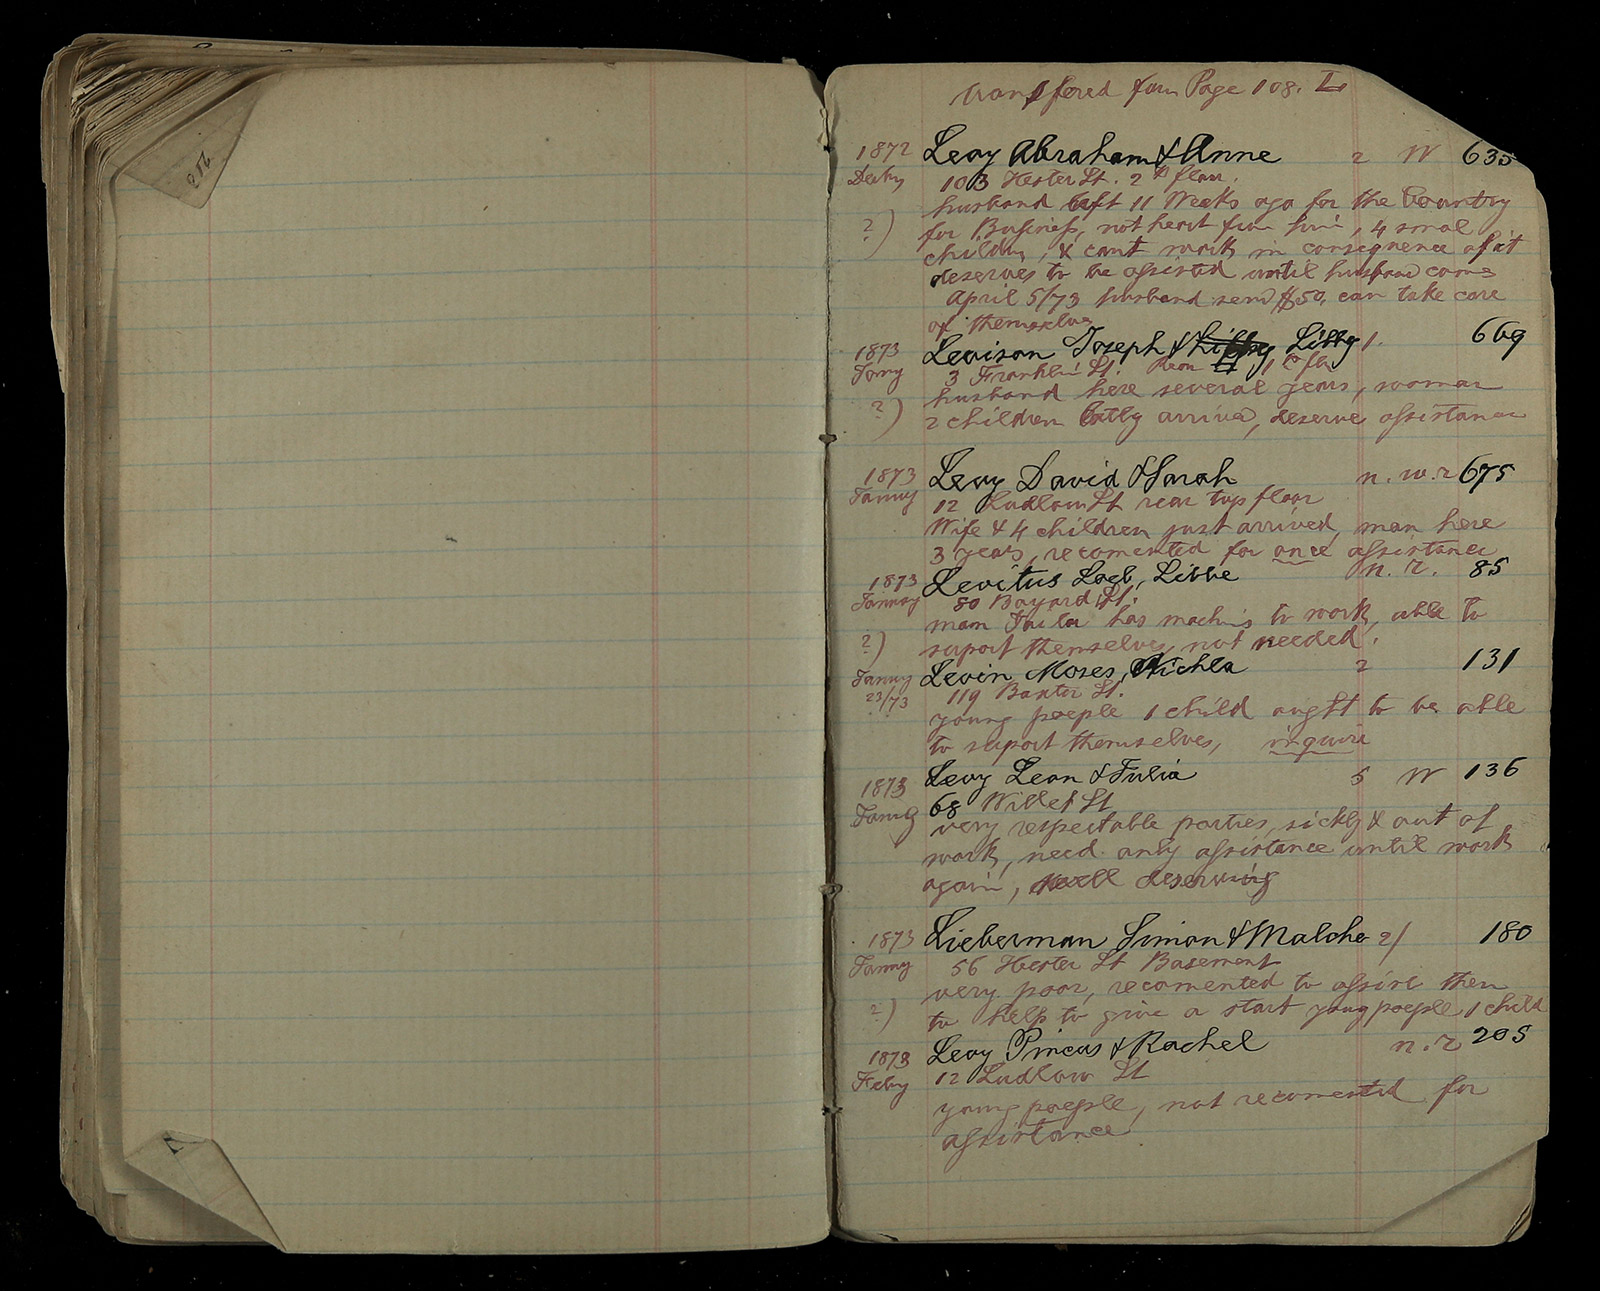 216
transfered from Page 108. L
1872 Levy Abraham & Anne 2 W 635
Decbr 103 Hester St. 2d floor.
husband left 11 Weeks ago for the Country
?) for Business, not heart from him, 4 smal
children, & cant work in consequence of it
deserves to be assisted until husband come
April 5/73 husband send $50. can take care
of themselve
1873 Levison Joseph & Libby 1. 669
Janry 3 Franklin St. Rear 1st flr
husband here several years, woman
?) 2 children latly arrived, deserve assistance
1873 Levy David & Sarah n. w. r 675
Janry 12 Ludlow St rear top floor
Wife & 4 children just arrived, man here
3 years, recomented for once assistance
1873 Levitus Loeb, Libbe n. r. 85
Janray 80 Bayard St.
man Tailor has machins to work, able to
?) suport themselves, not needed.
Janry Levin Moses, Michla 2 131
23/73 119 Baxter St.
young poeple 1 child ought to be able
to suport themselves, inquire
1873 Levy Leon & Julia 5 W 136
Janry 68 Willet St
very respectable parties, sickly & out of
work, need only assistance until work
again, well deserving
1873 Lieberman Simon & Malche 2/ 180
Janry 56 Hester St Basement
very poor, recomented to assist them
?) to help to give a start young poeple 1 child
1873 Levy Pincus & Rachel n. r 205
Febry 12 Ludlow St
young poeple, not recomented for
assistance